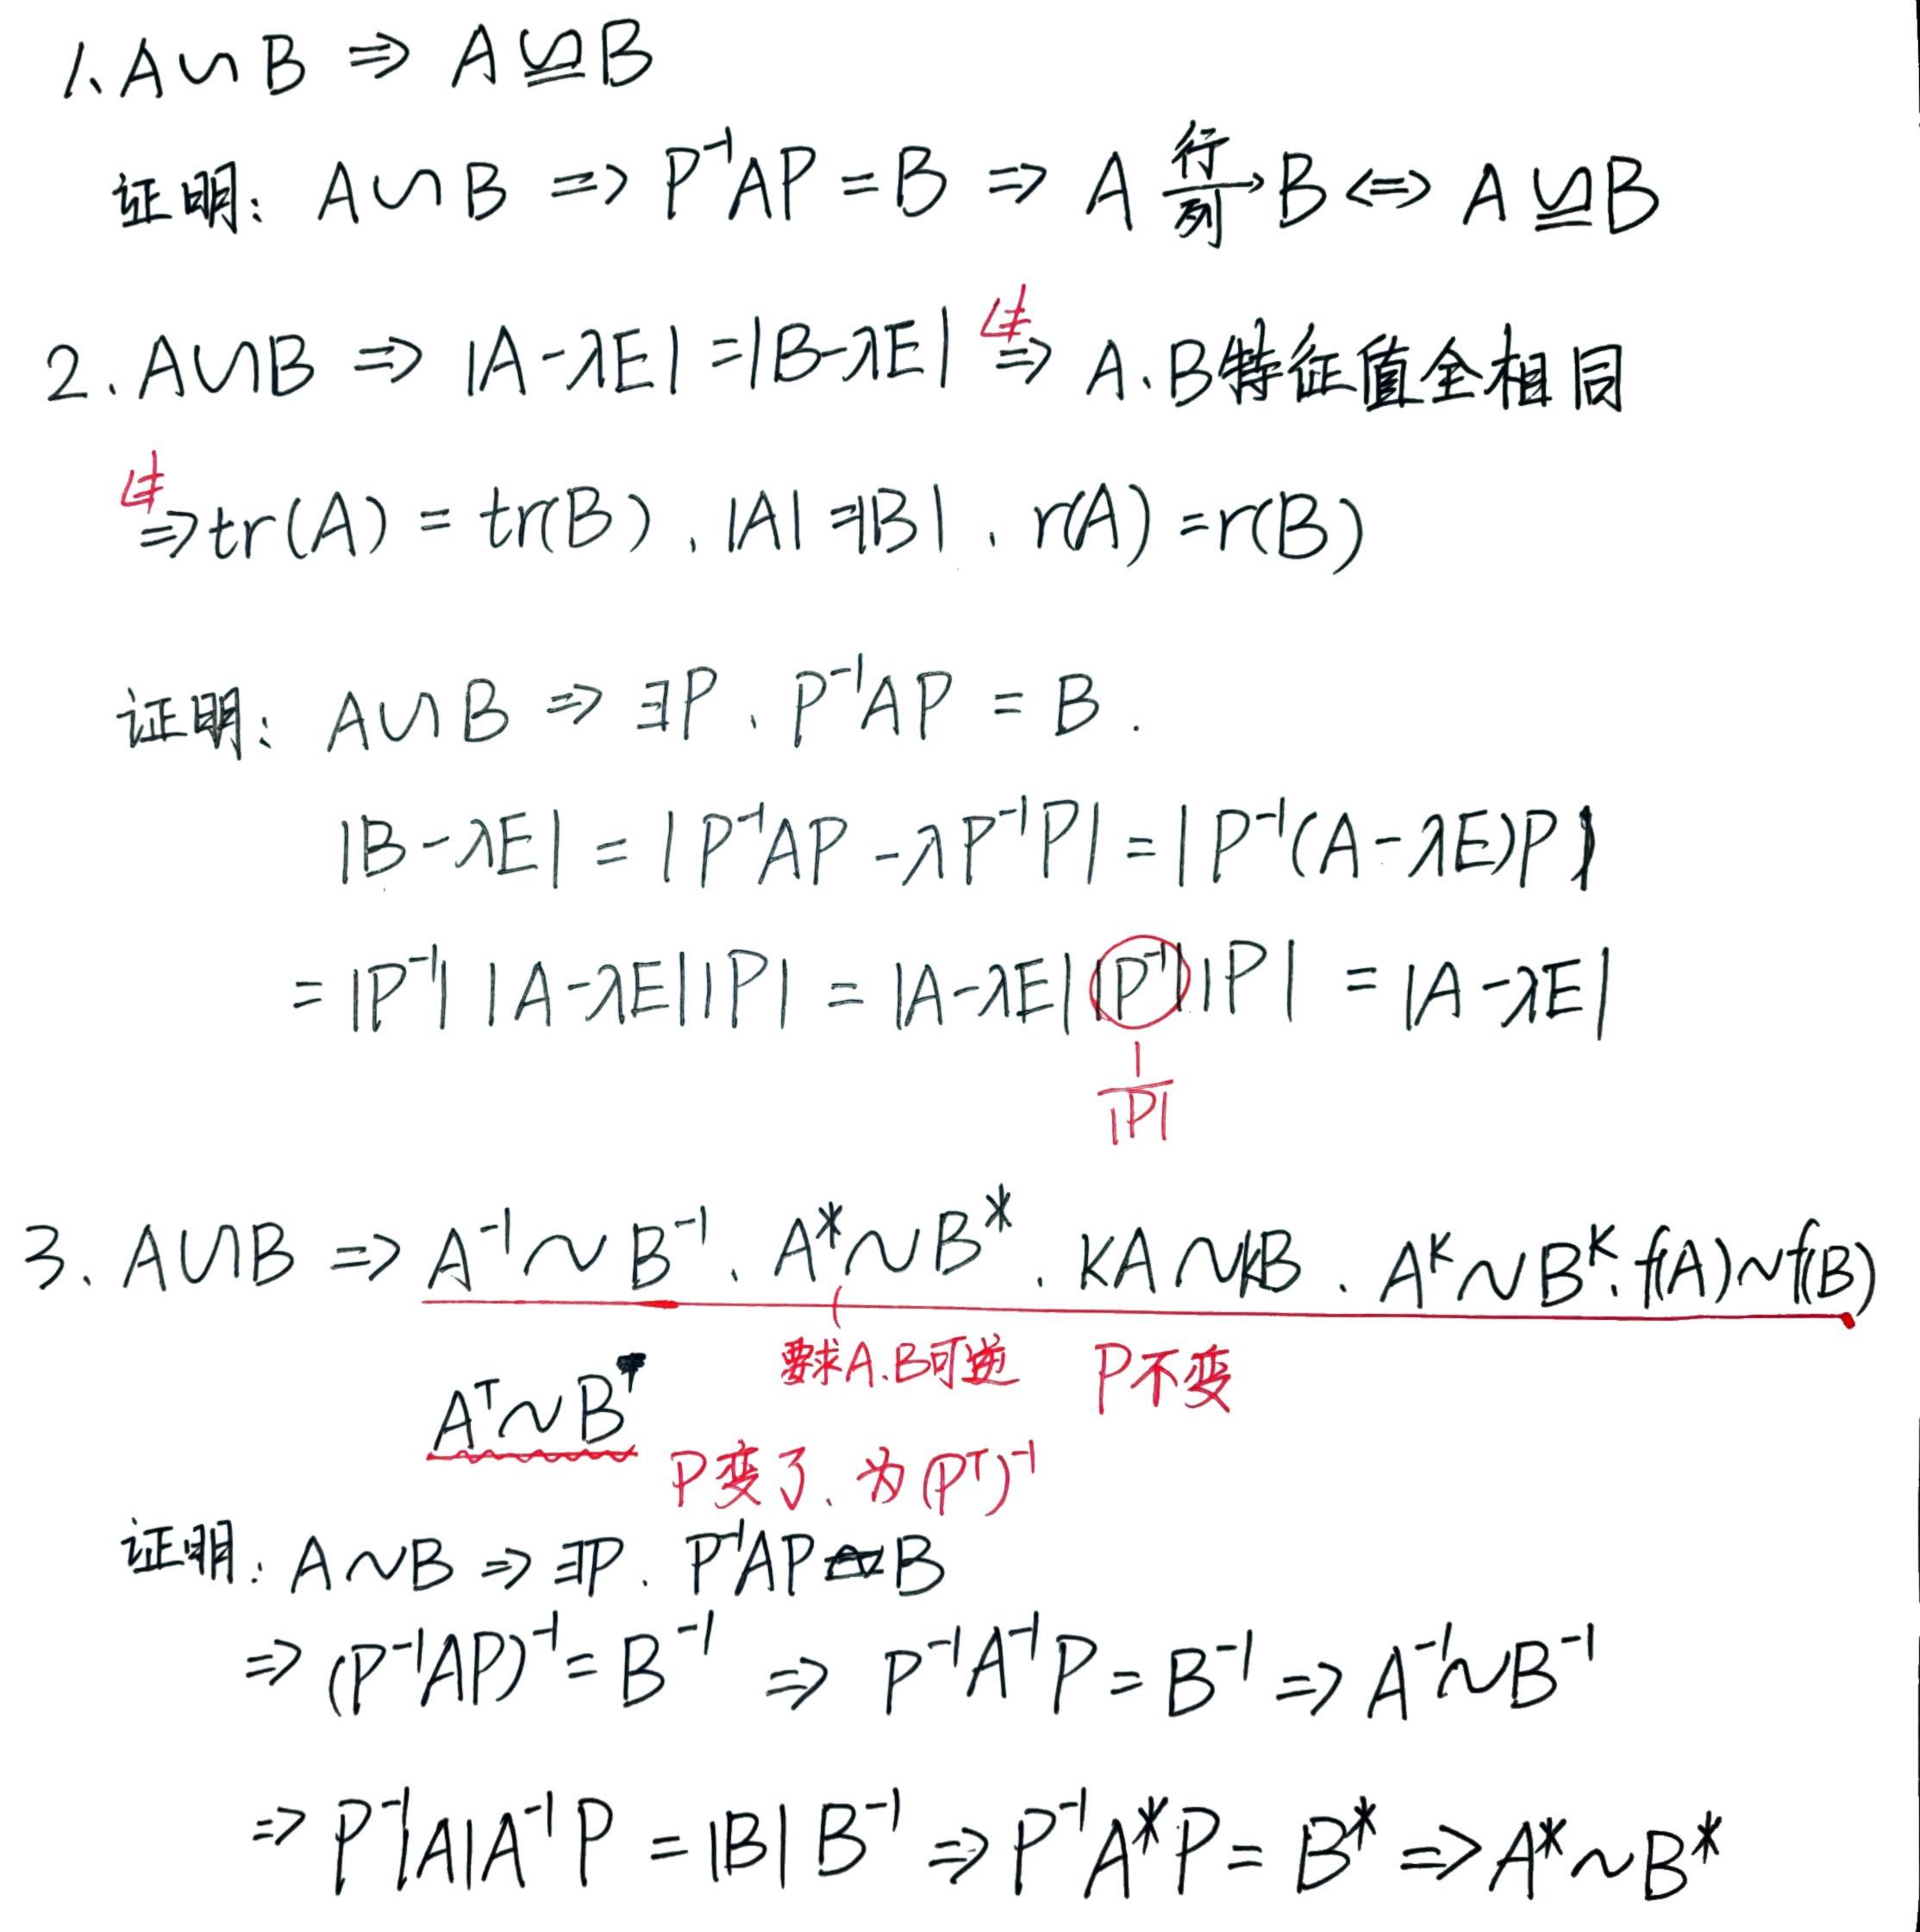 1、A∽B ⇒ A≌B
证明：A∽B ⇒ P⁻¹AP = B ⇒ A 行/列→ B ⇔ A≌B
2、A∽B ⇒ |A-λE| = |B-λE| ⇍ ⇒ A、B特征值全相同
⇍ ⇒ tr(A) = tr(B)、|A| = |B|、r(A) = r(B)
证明：A∽B ⇒ ∃P、P⁻¹AP = B.
|B-λE| = |P⁻¹AP - λP⁻¹P| = |P⁻¹(A-λE)P|
= |P⁻¹| |A-λE| |P| = |A-λE| |P⁻¹| |P| = |A-λE|
1/|P|
3、A∽B ⇒ A⁻¹~B⁻¹、A*~B*、KA~kB、Aᴷ~Bᴷ、f(A)~f(B)
要求A、B可逆 P不变
Aᵀ~Bᵀ
P变了、为(Pᵀ)⁻¹
证明：A~B ⇒ ∃P、P⁻¹AP = B
⇒ (P⁻¹AP)⁻¹ = B⁻¹ ⇒ P⁻¹A⁻¹P = B⁻¹ ⇒ A⁻¹~B⁻¹
⇒ P⁻¹|A|A⁻¹P = |B|B⁻¹ ⇒ P⁻¹A*P = B* ⇒ A*~B*